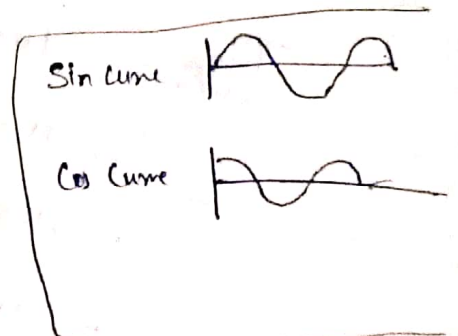 Sin curve
Cos Curve